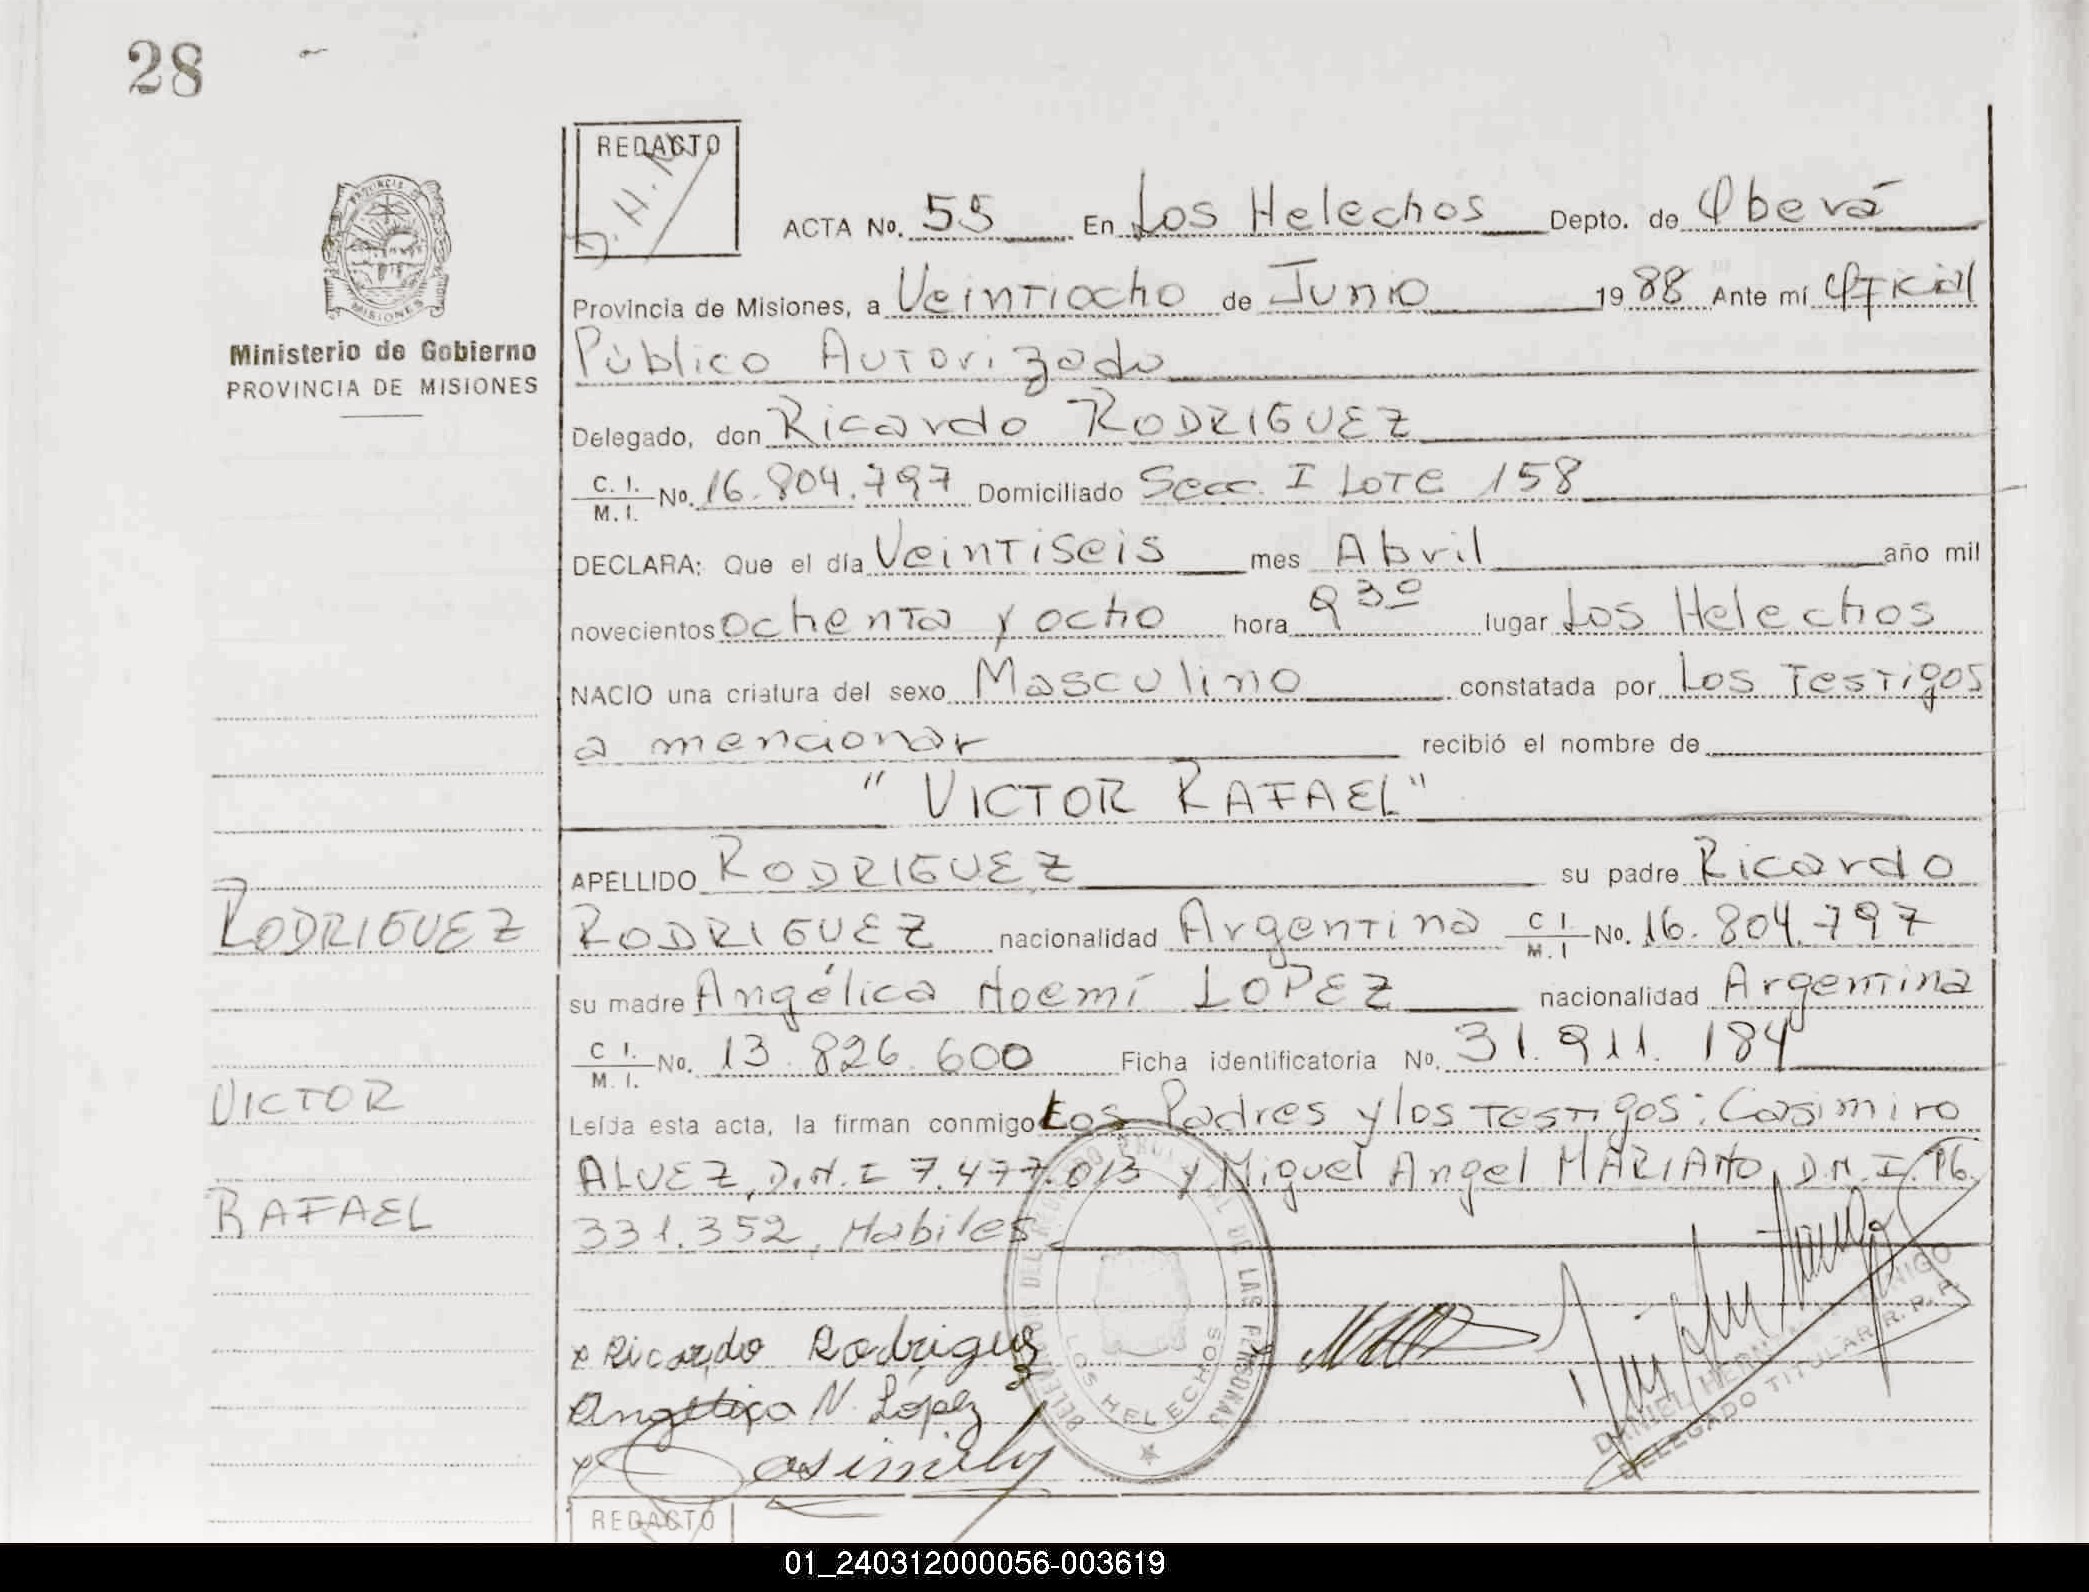 28
REDACTO
D.H.N
ACTA No. 55 En Los Helechos Depto. de Oberá
Provincia de Misiones, a Veintiocho de Junio 1988 Ante mí Oficial
Ministerio de Gobierno
PROVINCIA DE MISIONES
Público Autorizado
Delegado, don Ricardo RODRIGUEZ
C. I. M. I. No. 16.804.797 Domiciliado Secc. I Lote 158
DECLARA: Que el día Veintiseis mes Abril año mil
novecientos ochenta y ocho hora 9 30 lugar Los Helechos
NACIO una criatura del sexo Masculino constatada por Los Testigos
a mencionar recibió el nombre de
"VICTOR RAFAEL"
APELLIDO RODRIGUEZ su padre Ricardo
RODRIGUEZ
RODRIGUEZ nacionalidad Argentina C I. M. I No. 16.804.797
su madre Angélica Noemí LOPEZ nacionalidad Argentina
C I. M. I. No. 13.826.600 Ficha identificatoria No. 31.911.184
VICTOR
Leída esta acta, la firman conmigo Los Padres y los Testigos: Casimiro
ALVEZ, D.N.I 7.477.013 y Miguel Angel MARIANO, D.N.I. 16.
RAFAEL
331.352, Habiles.
x Ricardo Rodriguez
Angelica N. López
LOS HELECHOS
DE LAS PERSONAS
DELEGADO TITULAR R. P. P.
REDACTO
01_240312000056-003619